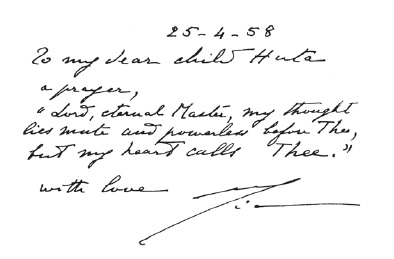 25-4-58
To my dear child Huta
a prayer,
"Lord, eternal Master, my thought
lies mute and powerless before Thee,
but my heart calls Thee."
with love